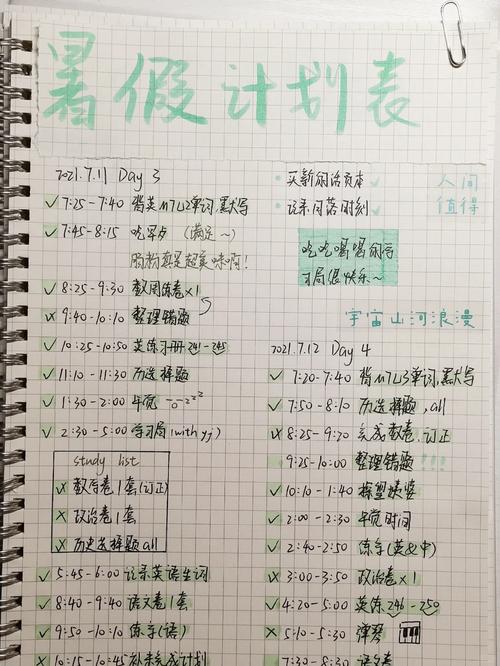 暑假计划表
2021.7.11 Day 3
7:25-7:40 背英M7U2单词,默大写
7:45-8:15 吃早点 (满足~)
肠粉真是超美味啊!
8:25-9:30 数周练卷×1
9:40-10:10 整理错题
10:25-10:50 英练习册241-245
11:10-11:30 历选择题
1:30-2:00 午觉
2:30-5:00 学习局(with yj)
study list
数学卷1套(订正)
政治卷1套
历史选择题all
5:45-6:00 记录英语生词
8:40-9:40 语文卷1套
9:50-10:10 练字(语)
10:15-10:45 补未完成计划
买新的治资本
记录闪落时刻
人间
值得
吃吃喝喝的学
习局很快乐~
宇宙山河浪漫
2021.7.12 Day 4
7:20-7:40 背M7U3单词,默大写
7:50-8:10 历选择题,all
8:25-9:20 完成数卷,订正
9:25-10:00 整理错题 !!!
10:10-1:40 探望姨婆
2:00-2:30 午觉时间
2:40-2:50 练字(英&中)
3:00-3:50 政治卷×1
4:20-5:00 英练246-250
5:10-5:30 弹琴
7:30-8:30 语文卷